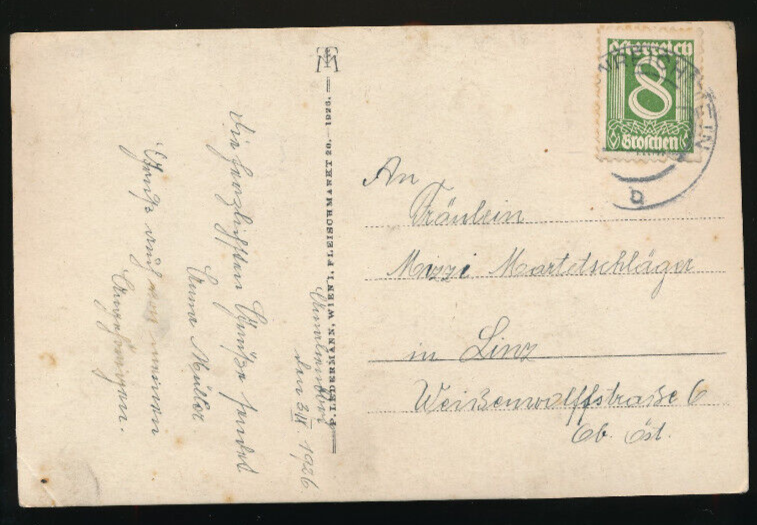 den 3/II 1926
Die herzlichsten Grüße sendet
Anna Müller
Grüße auch von meinen
Angehörigen.
P. LEDERMANN, WIEN I, FLEISCHMARKT 20. — 1926.
Österreich
8
Groschen
b
An
Fräulein
Mizzi Martetschläger
in Linz
Weißenwolffstraße 6
Ob. Öst.